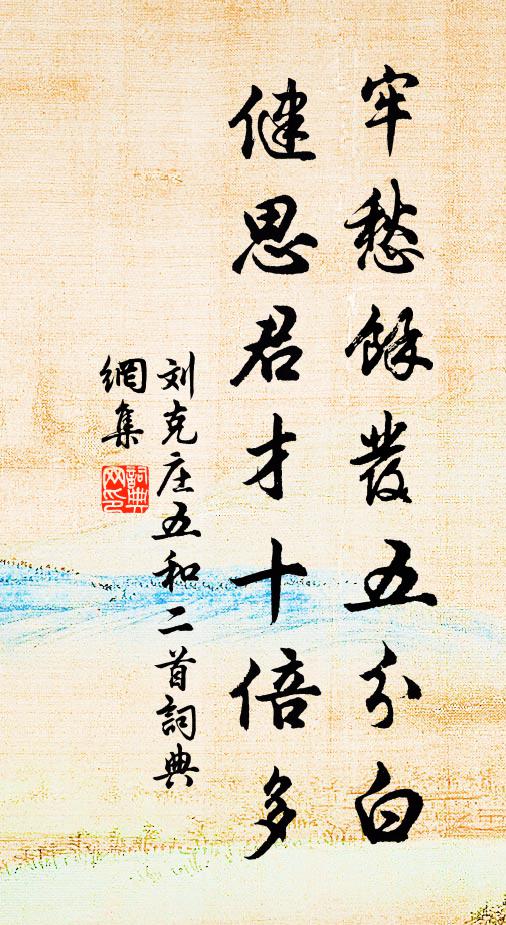 牢愁餘髮五分白
健思君才十倍多
刘克庄五和二首詞典
網集
詞典
网印